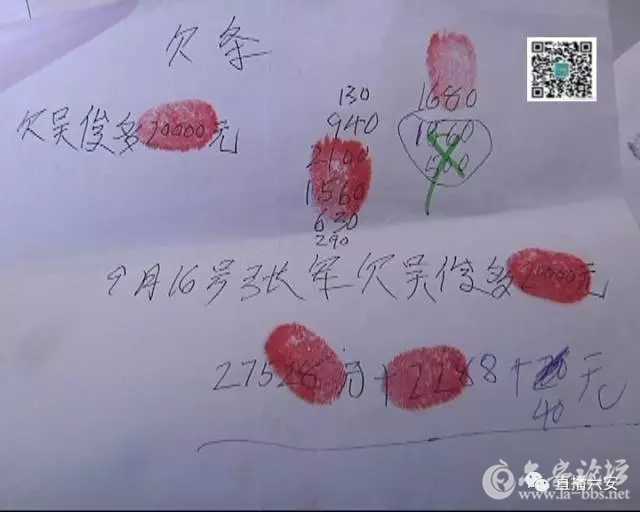 欠条
欠吴俊多20000元
130
940
2100
1560
630
290
1680
1560
500
9月16号张军欠吴俊多20000元
27528元+2288+元
40
六安论坛
直播六安
www.la-bbs.net